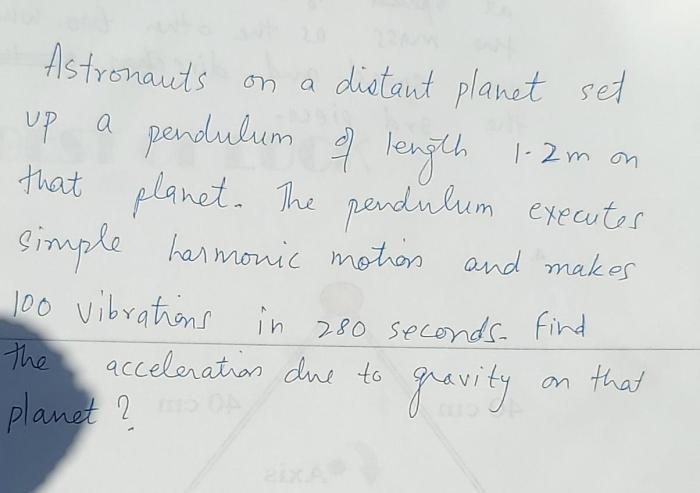 Astronauts on a distant planet set
up a pendulum of length 1.2m on
that planet. The pendulum executes
simple harmonic motion and makes
100 vibrations in 280 seconds. Find
the acceleration due to gravity on that
planet ?